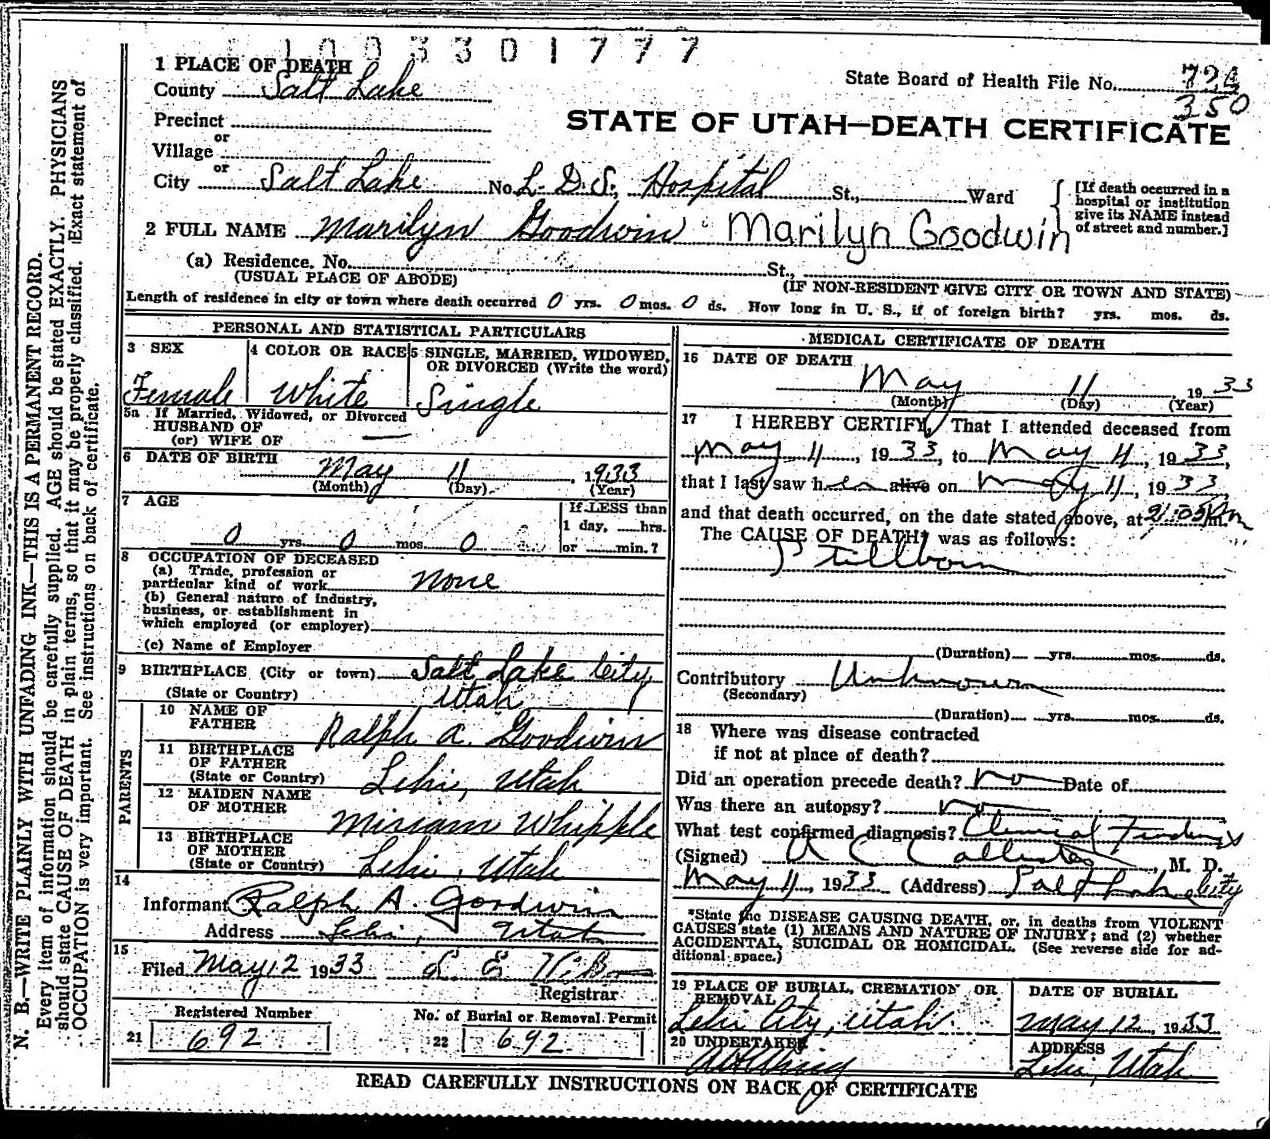 1003301777
1 PLACE OF DEATH
County Salt Lake
State Board of Health File No. 724
350
STATE OF UTAH—DEATH CERTIFICATE
Precinct
or
Village
or
City Salt Lake No. L. D. S. Hospital St., Ward
[If death occurred in a hospital or institution give its NAME instead of street and number.]
2 FULL NAME Marilyn Goodwin Marilyn Goodwin
(a) Residence, No. St.,
(USUAL PLACE OF ABODE) (IF NON-RESIDENT GIVE CITY OR TOWN AND STATE)
Length of residence in city or town where death occurred 0 yrs. 0 mos. 0 ds. How long in U. S., if of foreign birth? yrs. mos. ds.
PERSONAL AND STATISTICAL PARTICULARS
3 SEX
Female
4 COLOR OR RACE
White
5 SINGLE, MARRIED, WIDOWED, OR DIVORCED (Write the word)
Single
5a If Married, Widowed, or Divorced
HUSBAND OF
(or) WIFE OF —
6 DATE OF BIRTH May 11, 1933
(Month) (Day) (Year)
7 AGE
0 yrs. 0 mos. 0
If LESS than
1 day, hrs.
or min.?
8 OCCUPATION OF DECEASED
(a) Trade, profession or
particular kind of work none
(b) General nature of Industry,
business, or establishment in
which employed (or employer)
(c) Name of Employer
9 BIRTHPLACE (City or town) Salt Lake City
(State or Country) Utah
PARENTS
10 NAME OF FATHER Ralph A. Goodwin
11 BIRTHPLACE OF FATHER
(State or Country) Lehi, Utah
12 MAIDEN NAME OF MOTHER Miriam Whipple
13 BIRTHPLACE OF MOTHER
(State or Country) Lehi, Utah
14
Informant Ralph A. Goodwin
Address Lehi, Utah
15
Filed May 12 1933 L E
Registrar
Registered Number
21 692
No. of Burial or Removal Permit
22 692
MEDICAL CERTIFICATE OF DEATH
16 DATE OF DEATH
May 11 1933
(Month) (Day) (Year)
17 I HEREBY CERTIFY, That I attended deceased from
May 11, 1933, to May 11, 1933,
that I last saw her alive on May 11, 1933
and that death occurred, on the date stated above, at m.
The CAUSE OF DEATH* was as follows:
Stillborn
(Duration) yrs. mos. ds.
Contributory Unknown
(Secondary)
(Duration) yrs. mos. ds.
18 Where was disease contracted
if not at place of death?
Did an operation precede death? no Date of
Was there an autopsy? no
What test confirmed diagnosis? Clinical findings
(Signed) A C Callister, M. D.
May 11, 1933 (Address) Salt Lake City
*State the DISEASE CAUSING DEATH, or, in deaths from VIOLENT
CAUSES state (1) MEANS AND NATURE OF INJURY; and (2) whether
ACCIDENTAL, SUICIDAL OR HOMICIDAL. (See reverse side for ad-
ditional space.)
19 PLACE OF BURIAL, CREMATION OR REMOVAL
Lehi City, Utah
DATE OF BURIAL
May 12, 1933
20 UNDERTAKER
ADDRESS
Lehi, Utah
READ CAREFULLY INSTRUCTIONS ON BACK OF CERTIFICATE
N. B.—WRITE PLAINLY WITH UNFADING INK—THIS IS A PERMANENT RECORD.
Every item of information should be carefully supplied. AGE should be stated EXACTLY. PHYSICIANS
should state CAUSE OF DEATH in plain terms, so that it may be properly classified. Exact statement of
OCCUPATION is very important. See instructions on back of certificate.